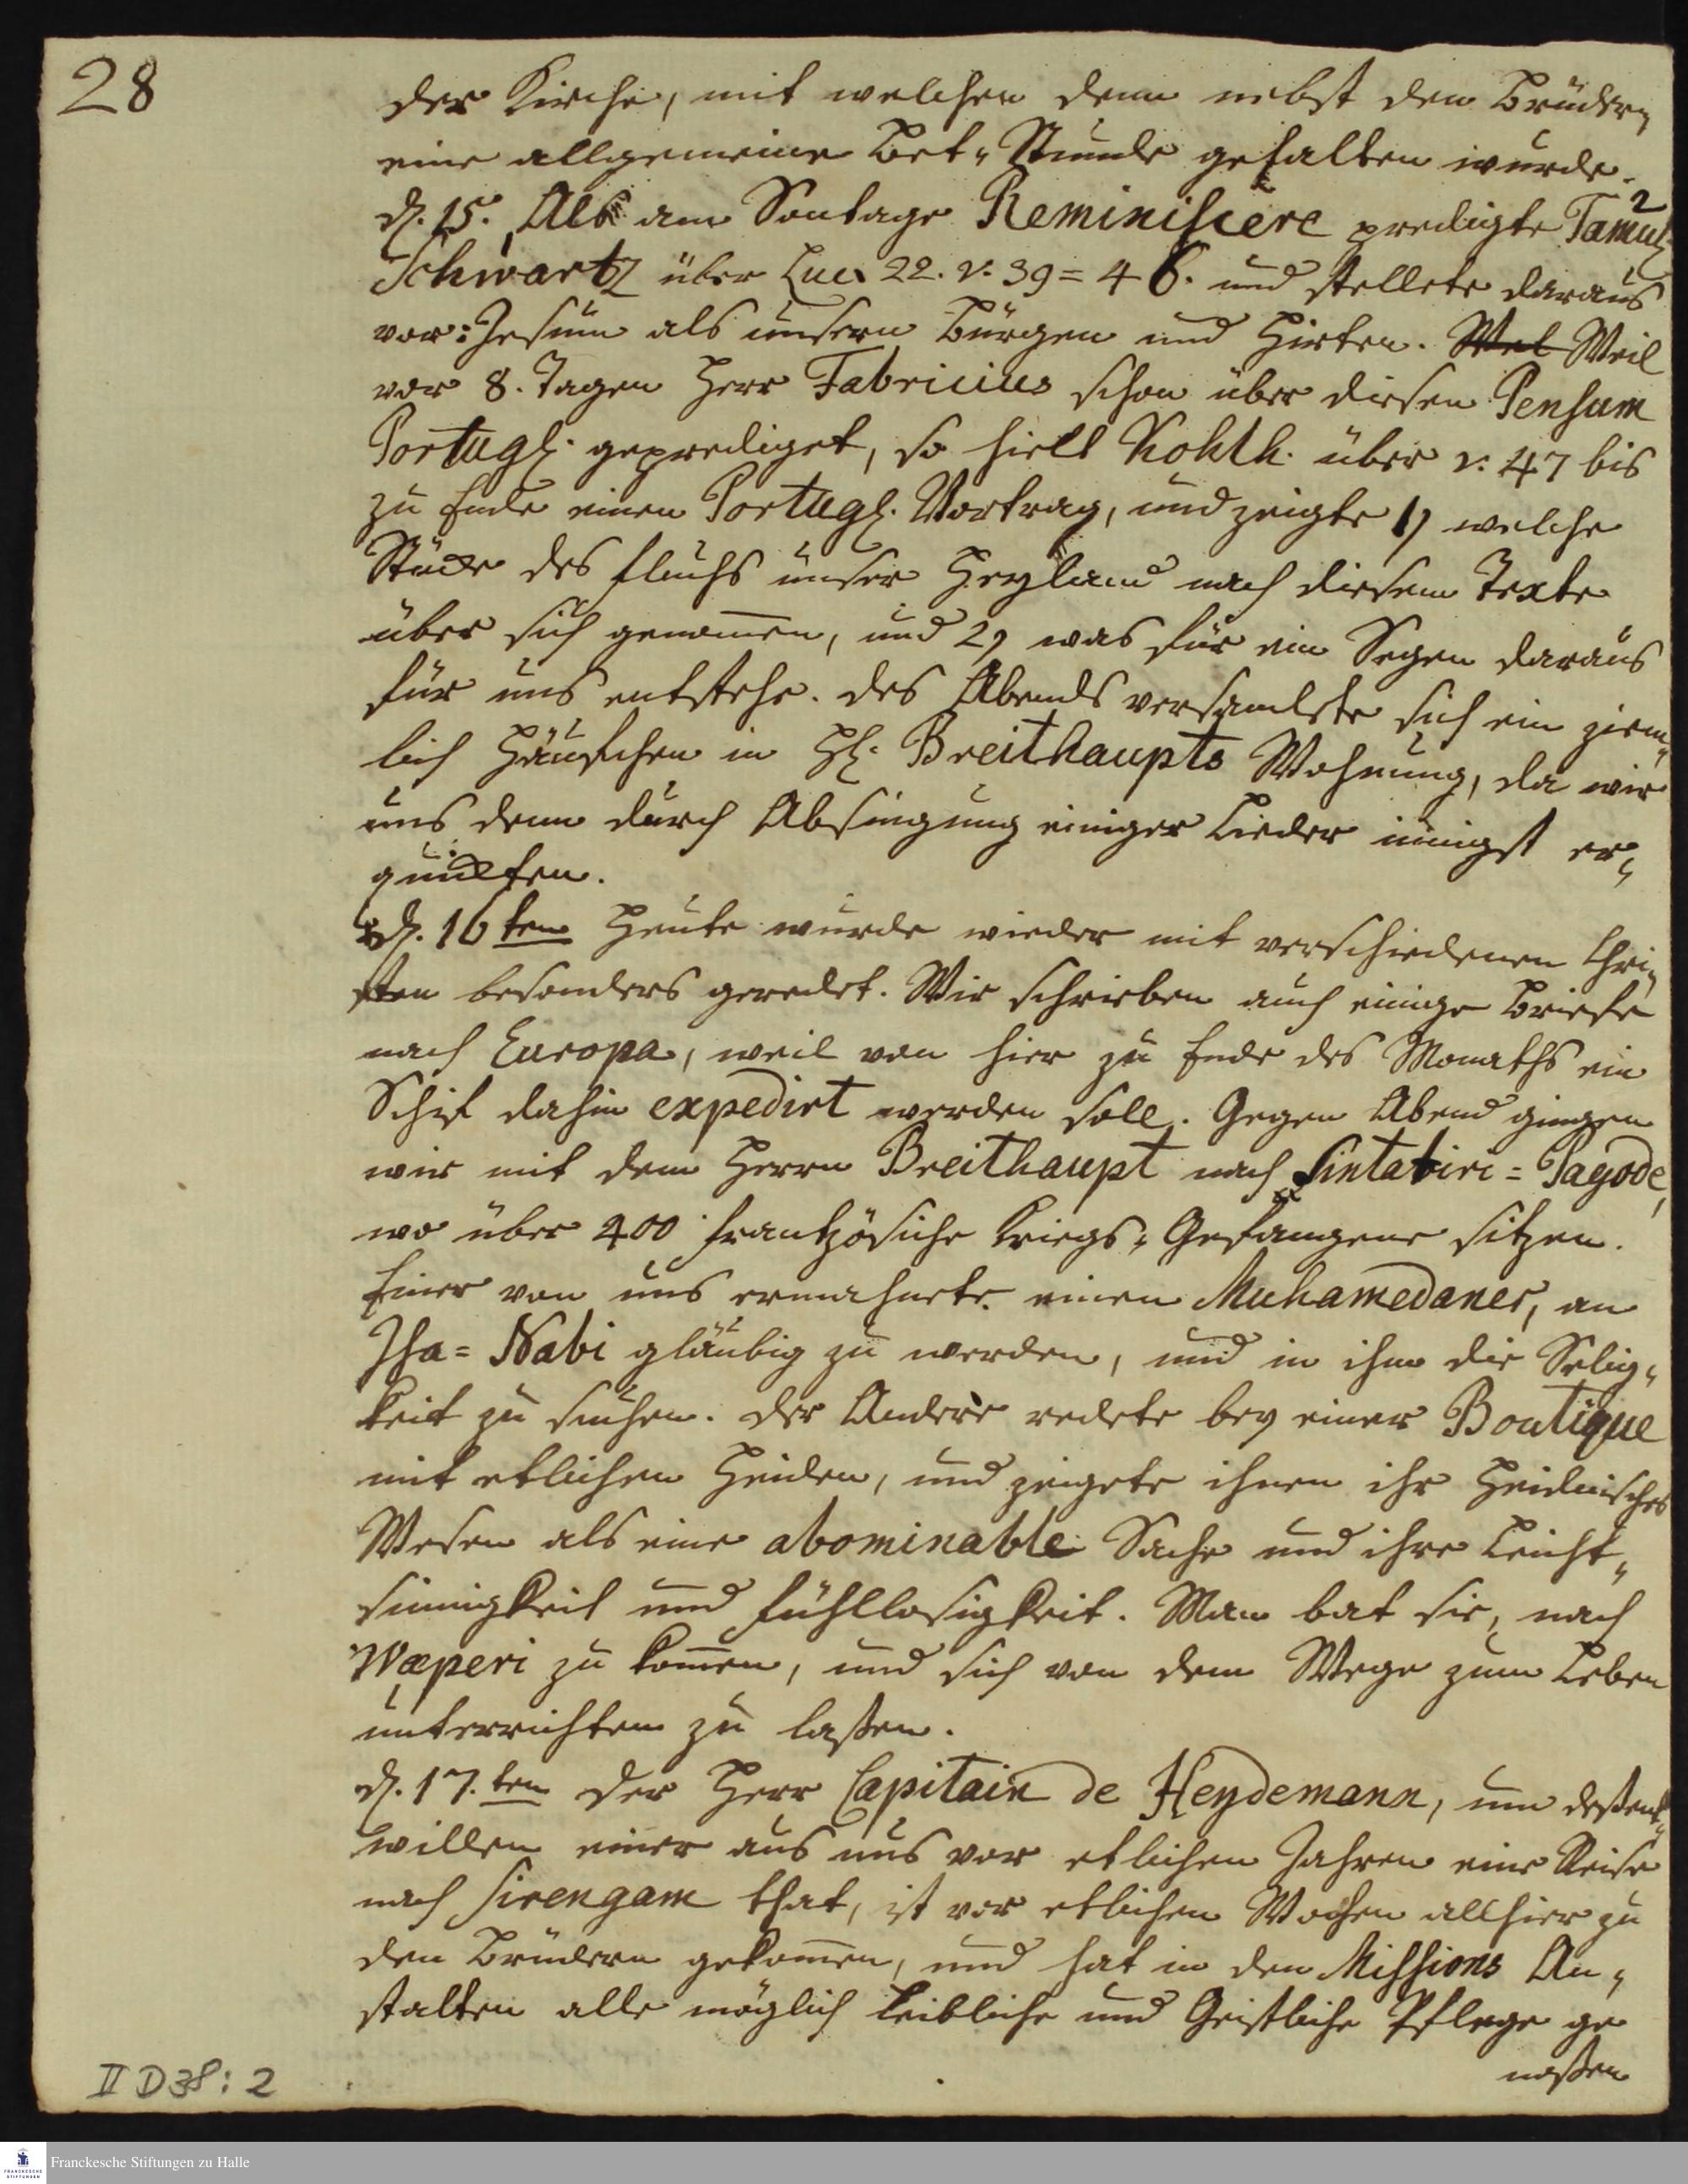 28
der Kirche, mit welchen denn nebst den Brüdern
eine allgemeine Bet-Stunde gehalten wurde.
d. 15. Als am Sontage Reminiscere predigte Tamul.
2
Schwartz über Luc. 22. v. 39=46. und stellete daraus
vor: Jesum als unsern Bürgen und Hirten. Wel Weil
vor 8. Tagen Herr Fabricius schon über diesen Pensum
Portugl. geprediget, so hielt Kohlh. über v. 47 bis
zu Ende einen Portugl. Vortrag, und zeigte 1, welche
Stücke des Fluchs unser Heyland nach diesem Texte
über sich genom̅en, und 2, was für ein Segen daraus
für uns entstehe. Des Abends versamlete sich ein ziem-
lich Häufchen in H. Breithaupts Wohnung, da wir
uns denn durch Absingung einiger Lieder innigst er-
quickten.
d. 16ten Heute wurde wieder mit verschiedenen Chri-
sten besonders geredet. Wir schrieben auch einige Briefe
nach Europa, weil von hier zu Ende des Monaths ein
Schif dahin expedirt werden soll. Gegen Abend gingen
wir mit dem Herrn Breithaupt nach Sintatiri=Pagode,
wo über 400 frantzösiche Kriegs-Gefangene sitzen.
Einer von uns ermahnete einen Muhamedaner, an
Isa=Nabi gläubig zu werden, und in ihm die Selig-
keit zu suchen. Der Andere redete bey einer Boutique
mit etlichen Heiden, und zeigete ihnen ihr Heidnisches
Wesen als eine abominable Sache und ihre Leicht-
sinnigkeit und Fühllosigkeit. Man bat sie, nach
Wæperi zu kom̅en, und sich von dem Wege zum Leben
unterrichten zu laßen.
d. 17.ten Der Herr Capitain de Heydemann, um deßent-
willen einer aus uns vor etlichen Jahren eine Reise
nach Sirengam that, ist vor etlichen Wochen allhier zu
den Brüdern gekom̅en, und hat in den Missions An-
stalten alle möglich leibliche und Geistliche Pflege ge
noßen
II D38: 2
Franckesche Stiftungen zu Halle
FRANCKESCHE STIFTUNGEN